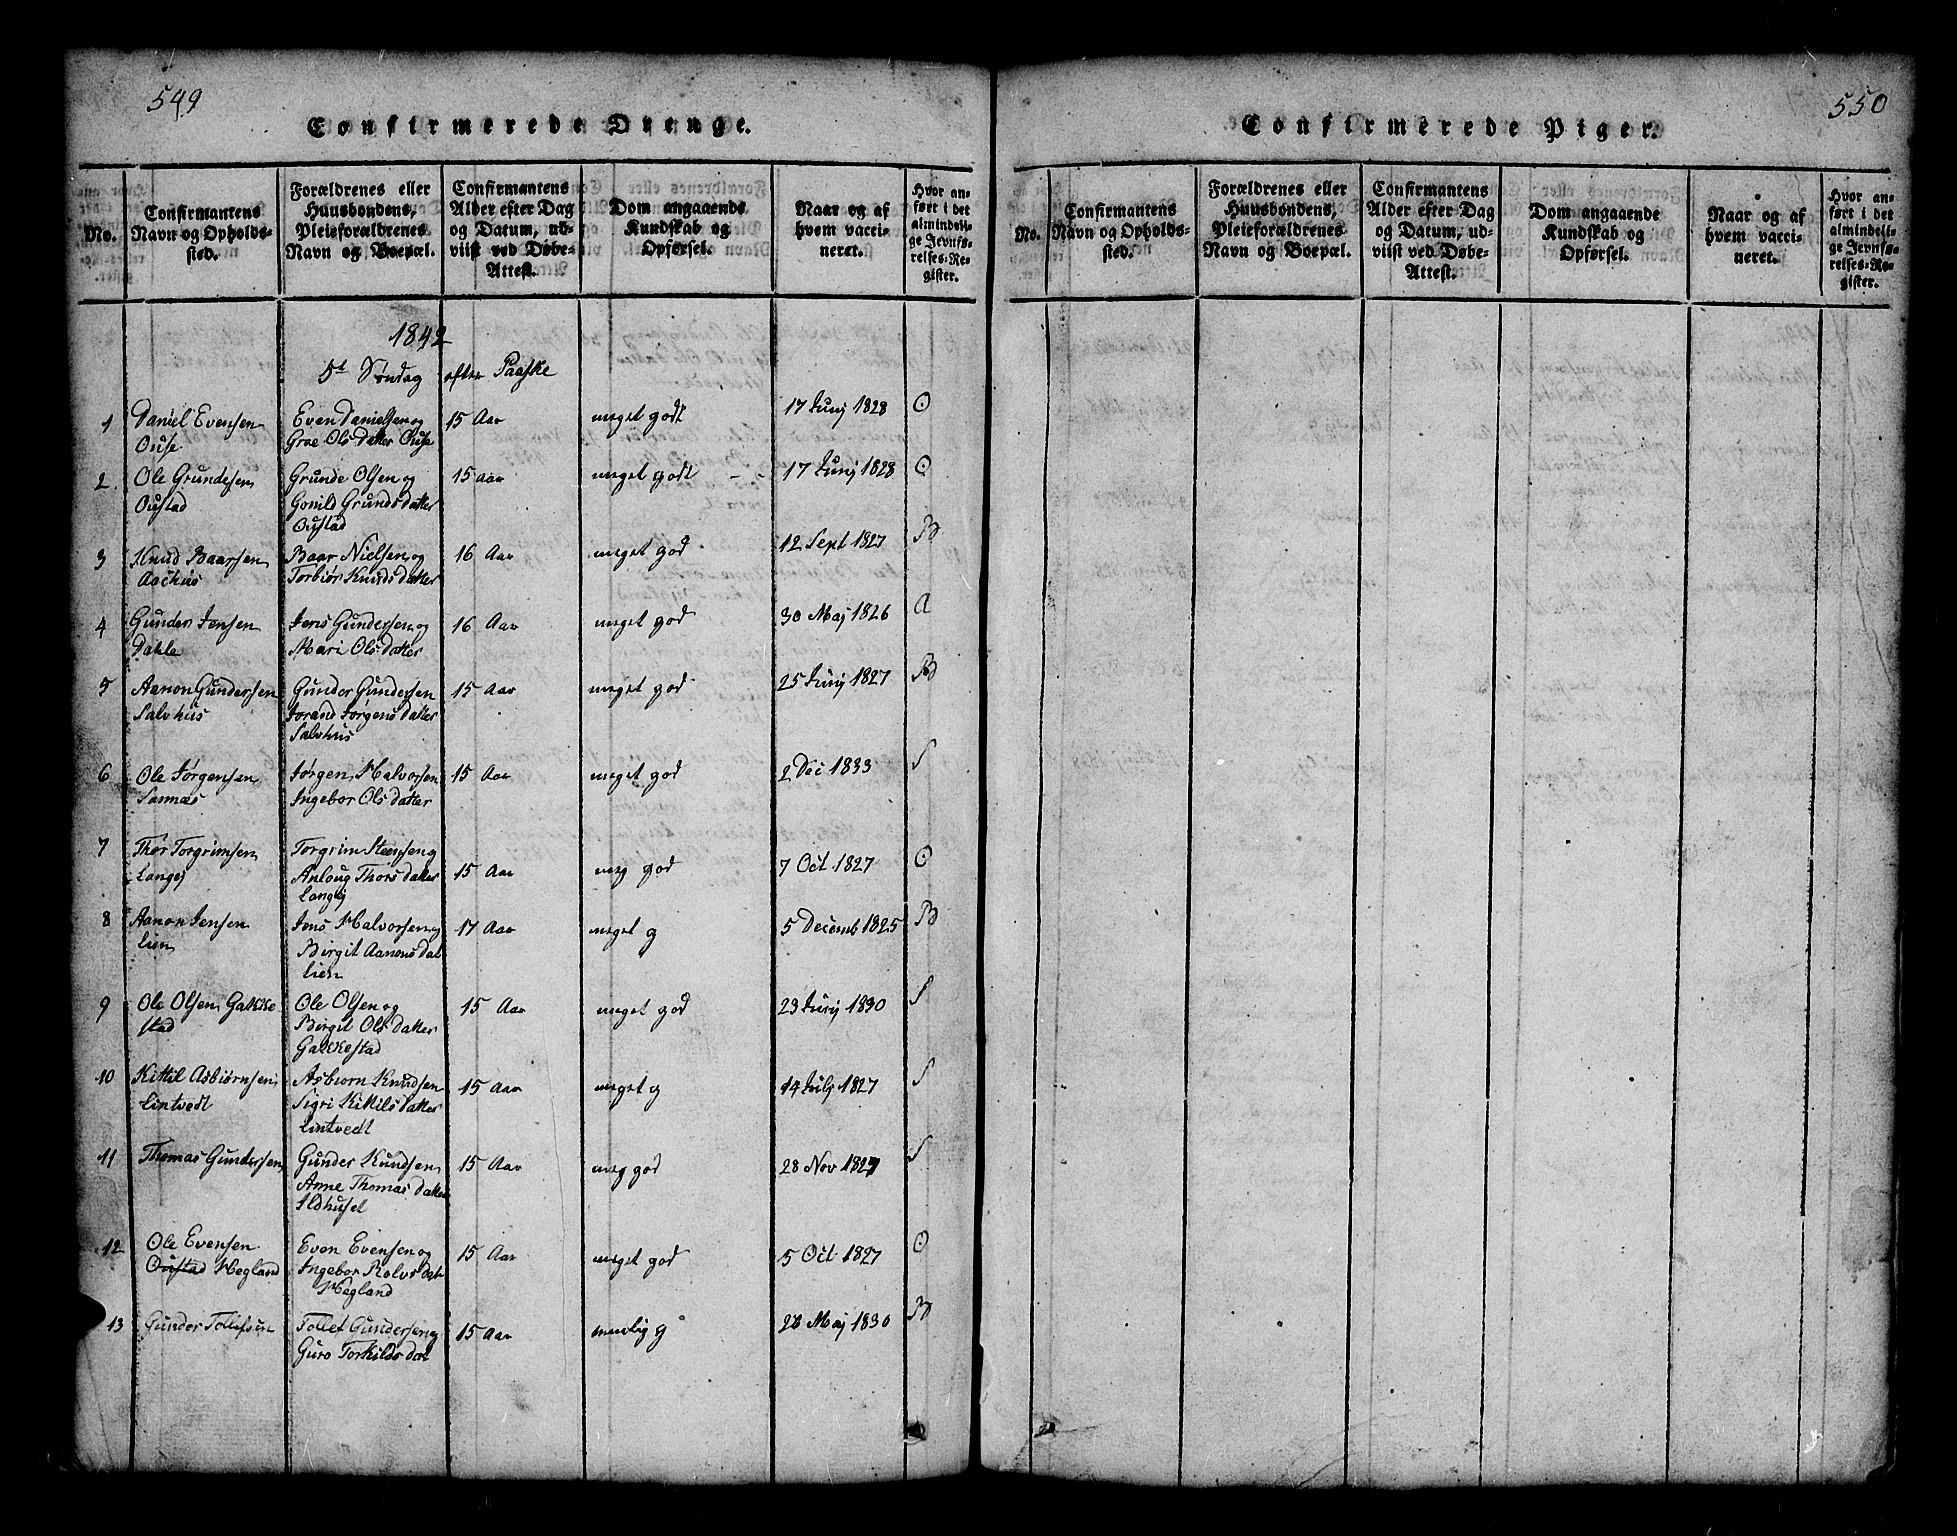 549
Confirmerede Drenge.
No.
Confirmantens
Navn og Opholds-
sted.
Forældrenes eller
Huusbondens,
Pleieforældrenes
Navn og Boepæl.
Confirmantens
Alder efter Dag
og Datum, ud-
viist ved Døbe-
Attest.
Dom angaaende
Kundskab og
Opførsel.
Naar og af
hvem vacci-
neret.
Hvor an-
ført i det
almindeli-
ge Jevnfø-
relses-Re-
gister.
1842
5t Søndag efter Paaske
1 Daniel Evensen Even Danielsen og 15 Aar meget godt 17 Junj 1828 O
Ouse Groe Olsdatter Ouse
2 Ole Grundesen Grunde Olsen og 15 aar meget godt - 17 Junj 1828 O
Oustad Gonild Grundsdatter
Oustad
3 Knud Baarsen Baar Nielsen og 16 Aar meget god 12 Sept 1827 B
Aachus Torbiør Knudsdatter
4 Gunder Jensen Jens Gundersen og 16 Aar meget god 30 Maj 1826 A
Dahle Mari Olsdatter
5 Aanon Gundersen Gunder Gundersen 15 Aar meget god 25 Junj 1827 B
Salvhus Jorand Jørgensdatter
Salvhus
6 Ole Jørgensen Jørgen Halvorsen 15 Aar meget god 2 Dec 1833 S
Sannæs Ingebor Olsdatter
7 Thor Torgrimsen Torgrim Steensen og 15 Aar meg god 7 Oct 1827 O
Langej Anloug Thorsdatter
Langej
8 Aanon Jensen Jens Halvorsen og 17 Aar meget g 5 Decemb 1825 B
Lien Birgit Aanonsdat
Lien
9 Ole Olsen Gakke Ole Olsen og 15 Aar meget god 23 Junj 1830 S
stad Birgit Olsdatter
Gakkestad
10 Kittil Asbiørnsen Asbiørn Knudsen 15 Aar meget g 14 Julj 1827 S
Lintvedt Sigri Kittilsdatter
Lintvedt
11 Thomas Gundersen Gunder Knudsen 15 Aar meg god 28 Nov 1827 S
Anne Thomasdatter
Ildhusel
12 Ole Evensen Even Evensen og 15 Aar meget god 5 Oct 1827 O
Oustad Hegland Ingebor Rolvsdat
Hegland
13 Gunder Tollefsen Tollef Gundersen og 15 Aar g 28 Maj 1830 B
Guro Torkildsdat
550
Confirmerede Piger.
No.
Confirmantens
Navn og Opholds-
sted.
Forældrenes eller
Huusbondens,
Pleieforældrenes
Navn og Boepæl.
Confirmantens
Alder efter Dag
og Datum, ud-
viist ved Døbe-
Attest.
Dom angaaende
Kundskab og
Opførsel.
Naar og af
hvem vacci-
neret.
Hvor an-
ført i det
almindeli-
ge Jevnfø-
relses-Re-
gister.